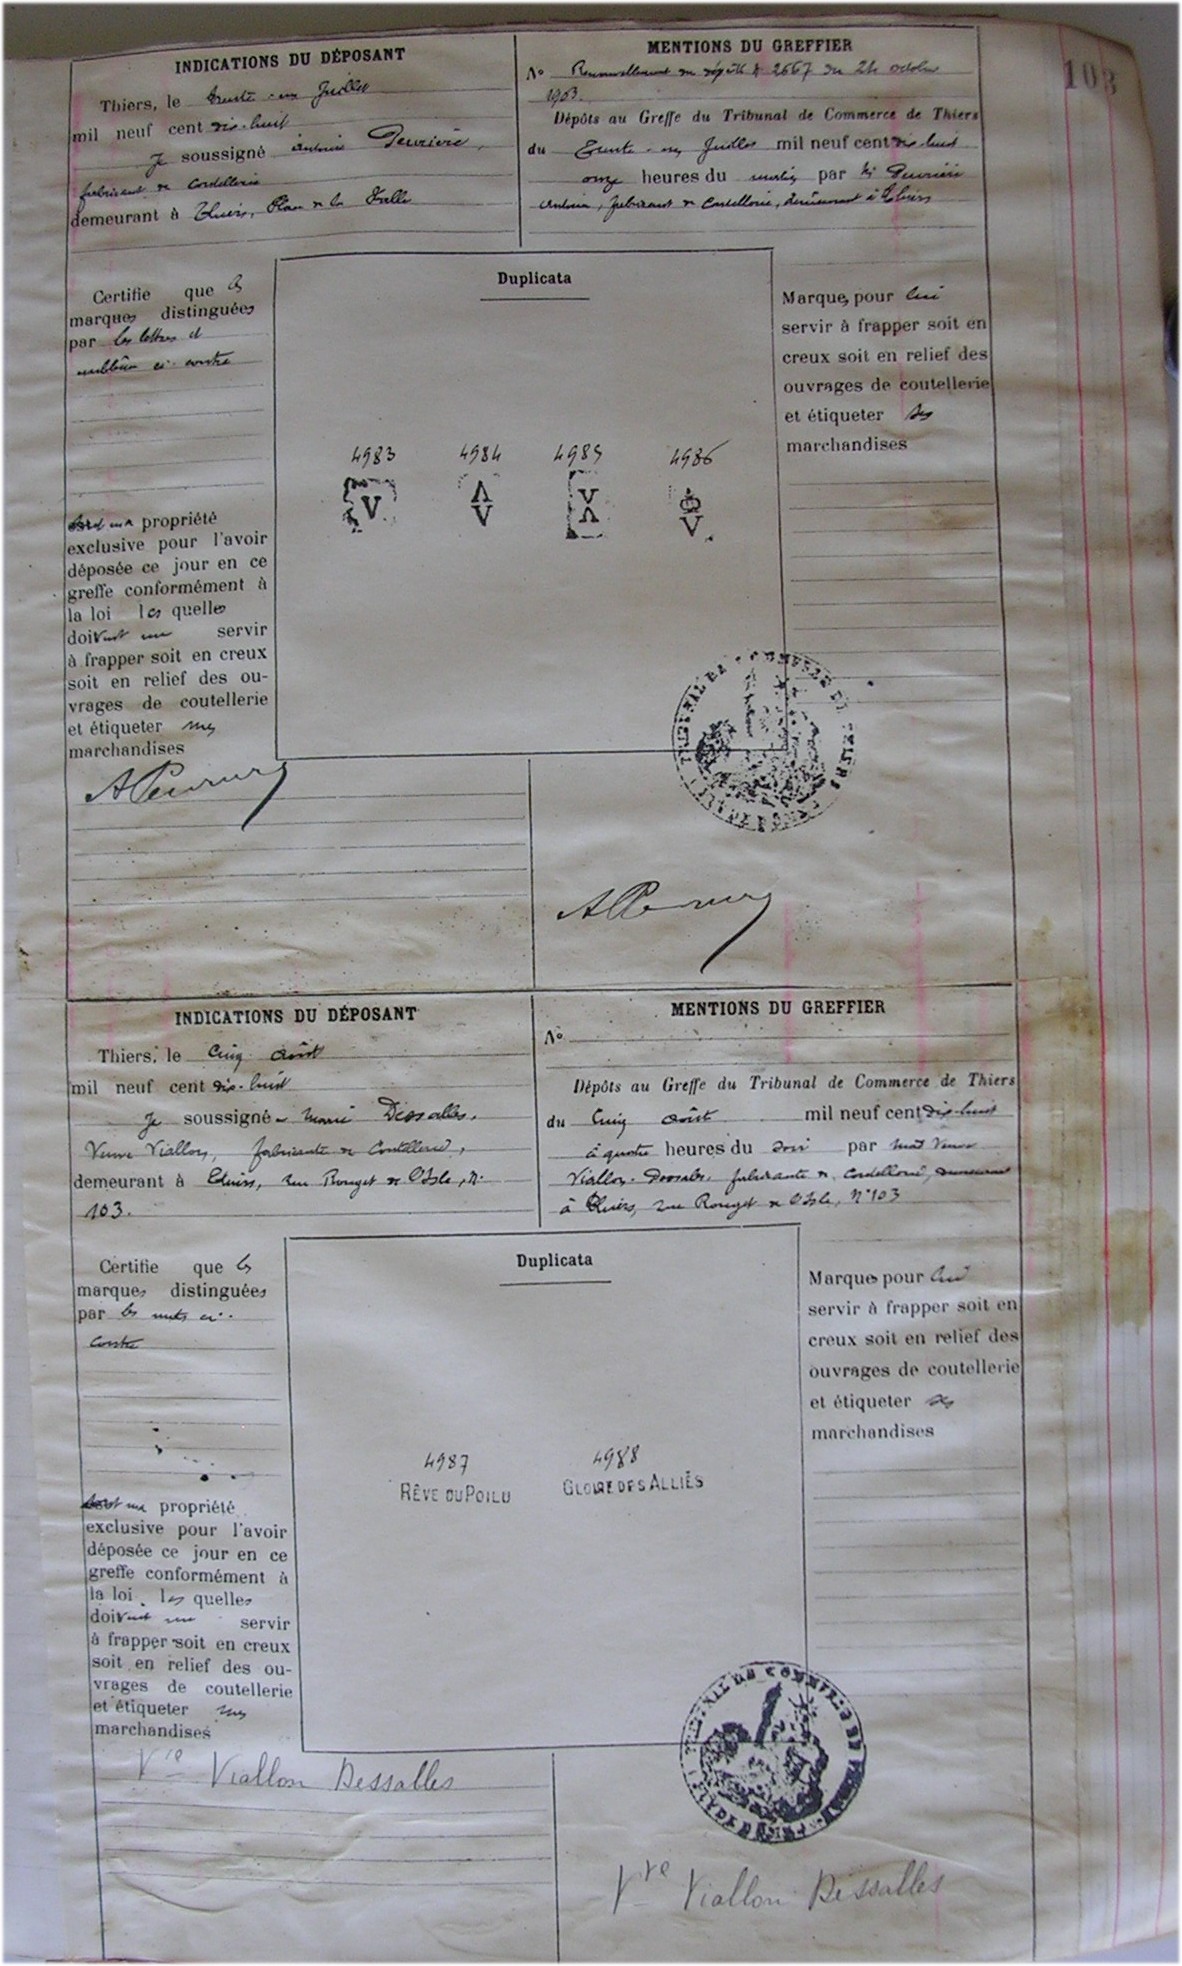 103
INDICATIONS DU DÉPOSANT
Thiers, le trente-un Juillet
mil neuf cent dix-huit
Je soussigné Antoine
fabricant de Coutellerie
demeurant à Thiers, Place de la Halle
MENTIONS DU GREFFIER
No Renouvellement du dépôt 2667 du 24 octobre
1903.
Dépôts au Greffe du Tribunal de Commerce de Thiers
du Trente-un Juillet mil neuf cent dix-huit
onze heures du matin par
Antoine, fabricant de Coutellerie, demeurant à Thiers
Certifie que les
marques distinguées
par les lettres et
emblèmes ci-contre
sont ma propriété
exclusive pour l'avoir
déposée ce jour en ce
greffe conformément à
la loi les quelles
doivent me servir
à frapper soit en creux
soit en relief des ou-
vrages de coutellerie
et étiqueter mes
marchandises
Duplicata
4983 4984 4985 4986
V Λ V V
V Λ
Marques pour lui
servir à frapper soit en
creux soit en relief des
ouvrages de coutellerie
et étiqueter ses
marchandises
INDICATIONS DU DÉPOSANT
Thiers, le Cinq Août
mil neuf cent dix-huit
Je soussignée Marie Dessalles,
Veuve Viallon, fabricante de Coutellerie,
demeurant à Thiers, rue Rouget de l'Isle, N°
103.
MENTIONS DU GREFFIER
No
Dépôts au Greffe du Tribunal de Commerce de Thiers
du Cinq Août mil neuf cent dix-huit
à quatre heures du soir par Mad Veuve
Viallon-Dessalles, fabricante de Coutellerie, demeurant
à Thiers, rue Rouget de l'Isle, N°103
Certifie que les
marques distinguées
par les mots ci-
contre
sont ma propriété
exclusive pour l'avoir
déposée ce jour en ce
greffe conformément à
la loi les quelles
doivent me servir
à frapper soit en creux
soit en relief des ou-
vrages de coutellerie
et étiqueter mes
marchandises
Duplicata
4987 4988
RÊVE DU POILU GLOIRE DES ALLIÉS
Marques pour lui
servir à frapper soit en
creux soit en relief des
ouvrages de coutellerie
et étiqueter ses
marchandises
Vve Viallon Dessalles
Vve Viallon Dessalles